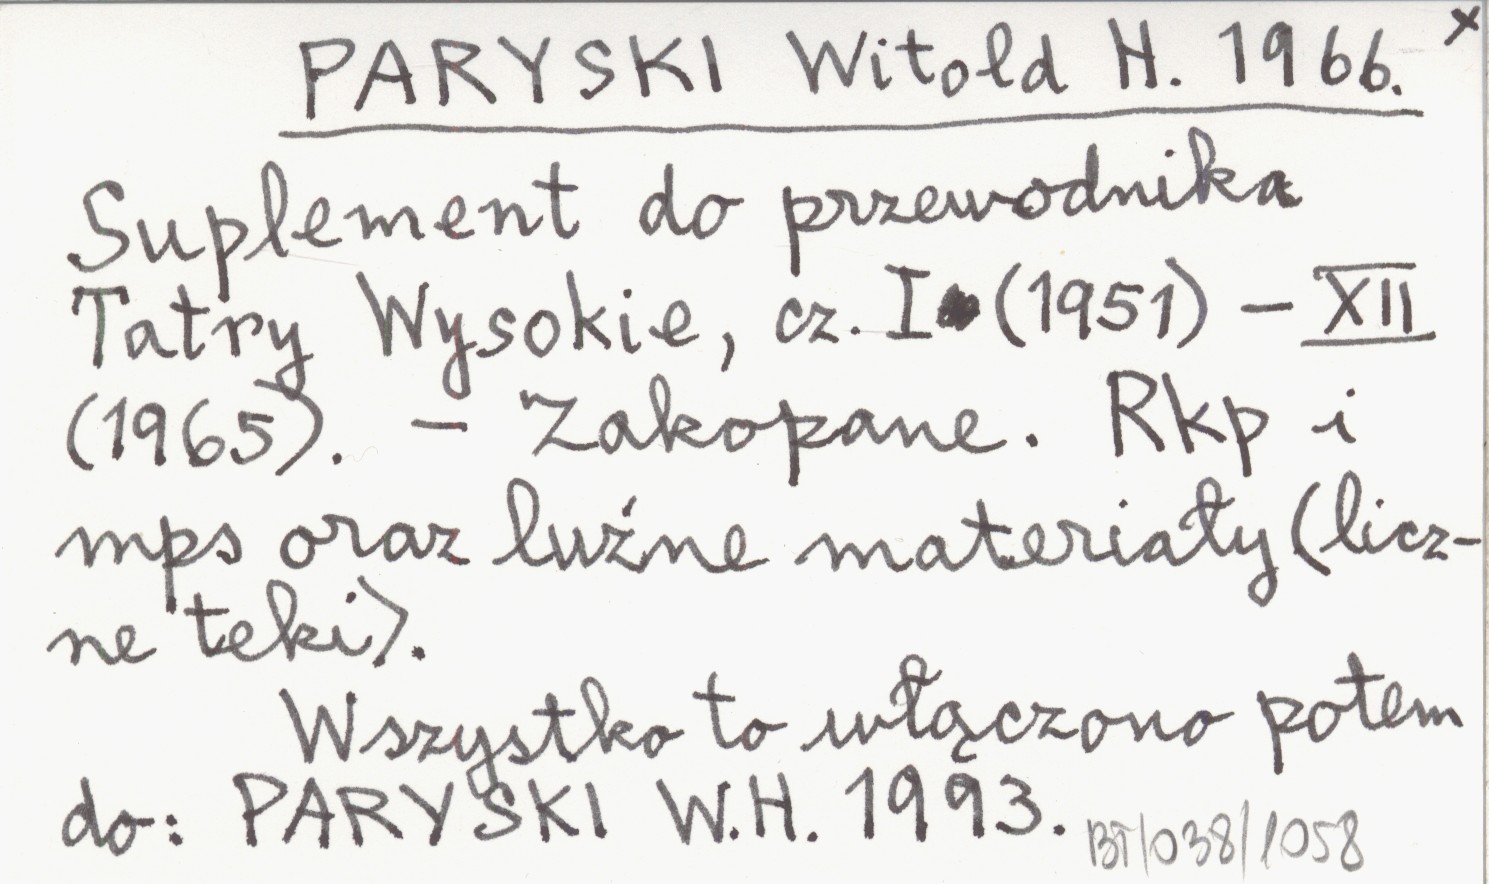 PARYSKI Witold H. 1966. x
Suplement do przewodnika
Tatry Wysokie, cz. I (1951) – XII
(1965). – Zakopane. Rkp i
mps oraz luźne materiały (licz-
ne teki).
Wszystko to włączono potem
do: PARYSKI W.H. 1993.
BT/038/1058